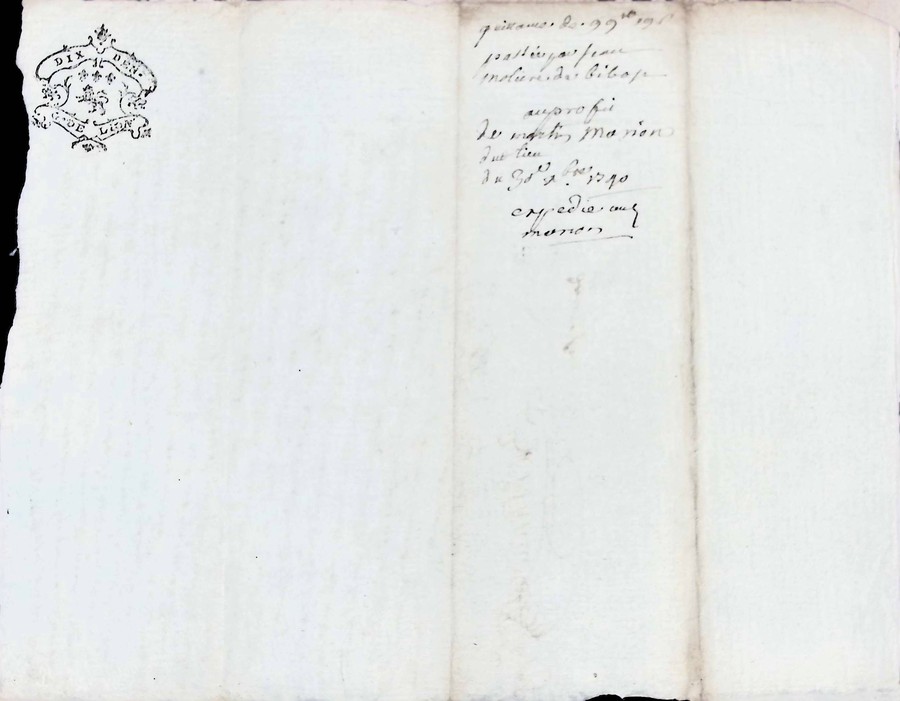 DIX DEN.
G. DE LION
quittance de 99lt 19s
passée par jean
molière de
au profit
de martin marion
dud lieu
du 30e xbre 1740
expedie aud
marion